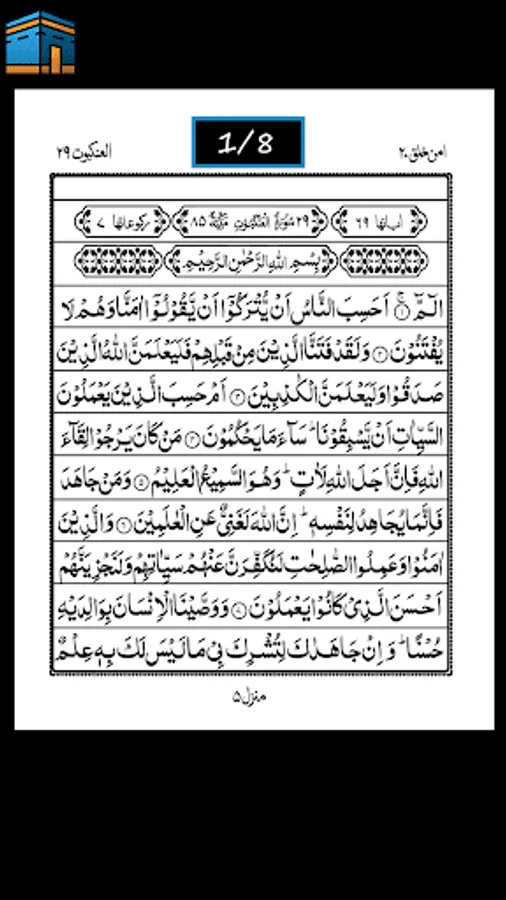 1/8
امن خلق ۲۰
العنکبوت ۲۹
اٰیاتها ٦٩
۲۹ سُوْرَةُ الْعَنْكَبُوْتِ مَكِّيَّةٌ ۸۵
رکوعاتها ۷
بِسْمِ اللهِ الرَّحْمٰنِ الرَّحِيْمِ
الٓمّٓ ۚ﴿۱﴾ اَحَسِبَ النَّاسُ اَنْ يُّتْرَكُوْۤا اَنْ يَّقُوْلُوْۤا اٰمَنَّا وَهُمْ لَا
يُفْتَنُوْنَ ﴿۲﴾ وَلَقَدْ فَتَنَّا الَّذِيْنَ مِنْ قَبْلِهِمْ فَلَيَعْلَمَنَّ اللهُ الَّذِيْنَ
صَدَقُوْا وَلَيَعْلَمَنَّ الْكٰذِبِيْنَ ﴿۳﴾ اَمْ حَسِبَ الَّذِيْنَ يَعْمَلُوْنَ
السَّيِّاٰتِ اَنْ يَّسْبِقُوْنَا ؕ سَآءَ مَا يَحْكُمُوْنَ ﴿۴﴾ مَنْ كَانَ يَرْجُوْا لِقَآءَ
اللهِ فَاِنَّ اَجَلَ اللهِ لَاٰتٍ ؕ وَهُوَ السَّمِيْعُ الْعَلِيْمُ ﴿۵﴾ وَمَنْ جَاهَدَ
فَاِنَّمَا يُجَاهِدُ لِنَفْسِهٖ ؕ اِنَّ اللهَ لَغَنِيٌّ عَنِ الْعٰلَمِيْنَ ﴿۶﴾ وَالَّذِيْنَ
اٰمَنُوْا وَعَمِلُوا الصّٰلِحٰتِ لَنُكَفِّرَنَّ عَنْهُمْ سَيِّاٰتِهِمْ وَلَنَجْزِيَنَّهُمْ
اَحْسَنَ الَّذِيْ كَانُوْا يَعْمَلُوْنَ ﴿۷﴾ وَوَصَّيْنَا الْاِنْسَانَ بِوَالِدَيْهِ
حُسْنًا ؕ وَاِنْ جَاهَدٰكَ لِتُشْرِكَ بِيْ مَا لَيْسَ لَكَ بِهٖ عِلْمٌ
منزل ۵